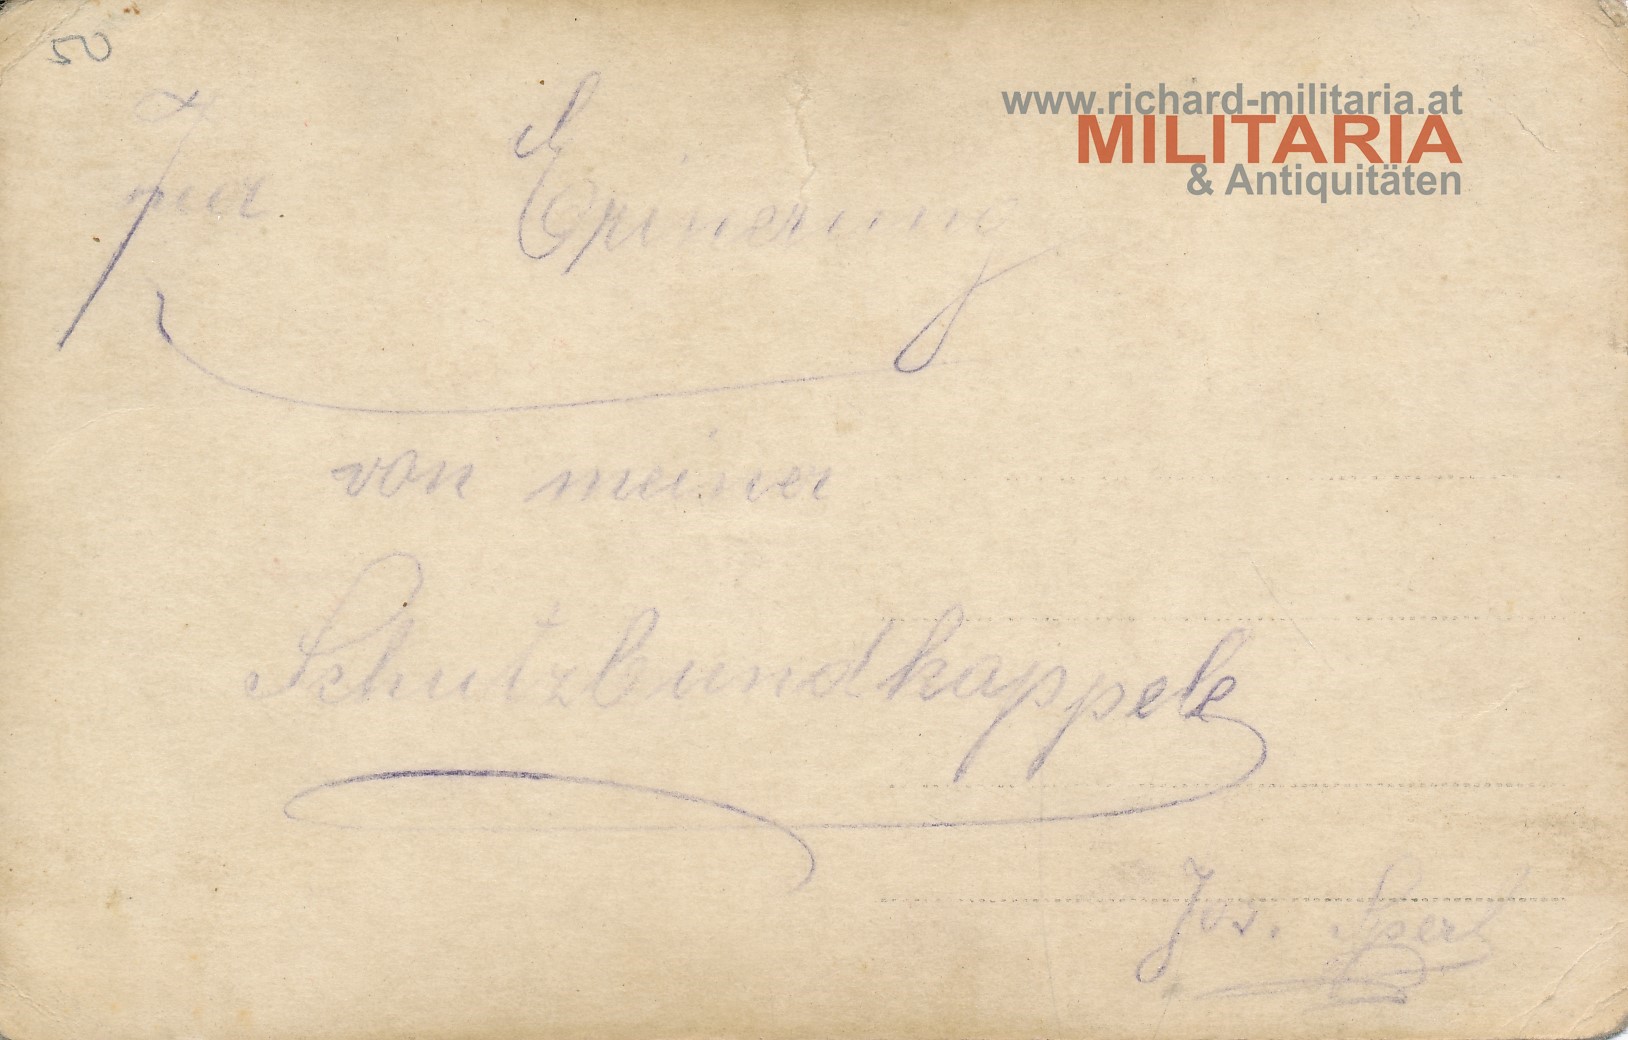 50
www.richard-militaria.at
MILITARIA
& Antiquitäten
Zur Erinerung
von meiner
Schutzbundkappele
Jos. Sperl